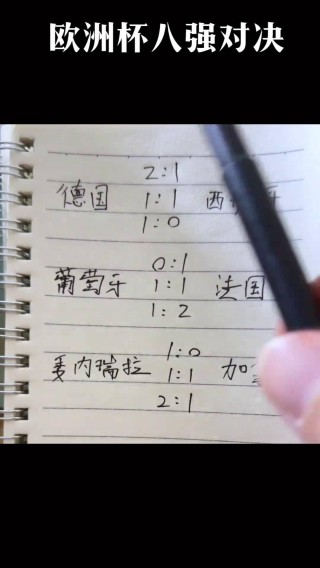 欧洲杯八强对决
2:1
德国 1:1 西
1:0
0:1
葡萄牙 1:1 法国
1:2
1:0
委内瑞拉 1:1 加
2:1